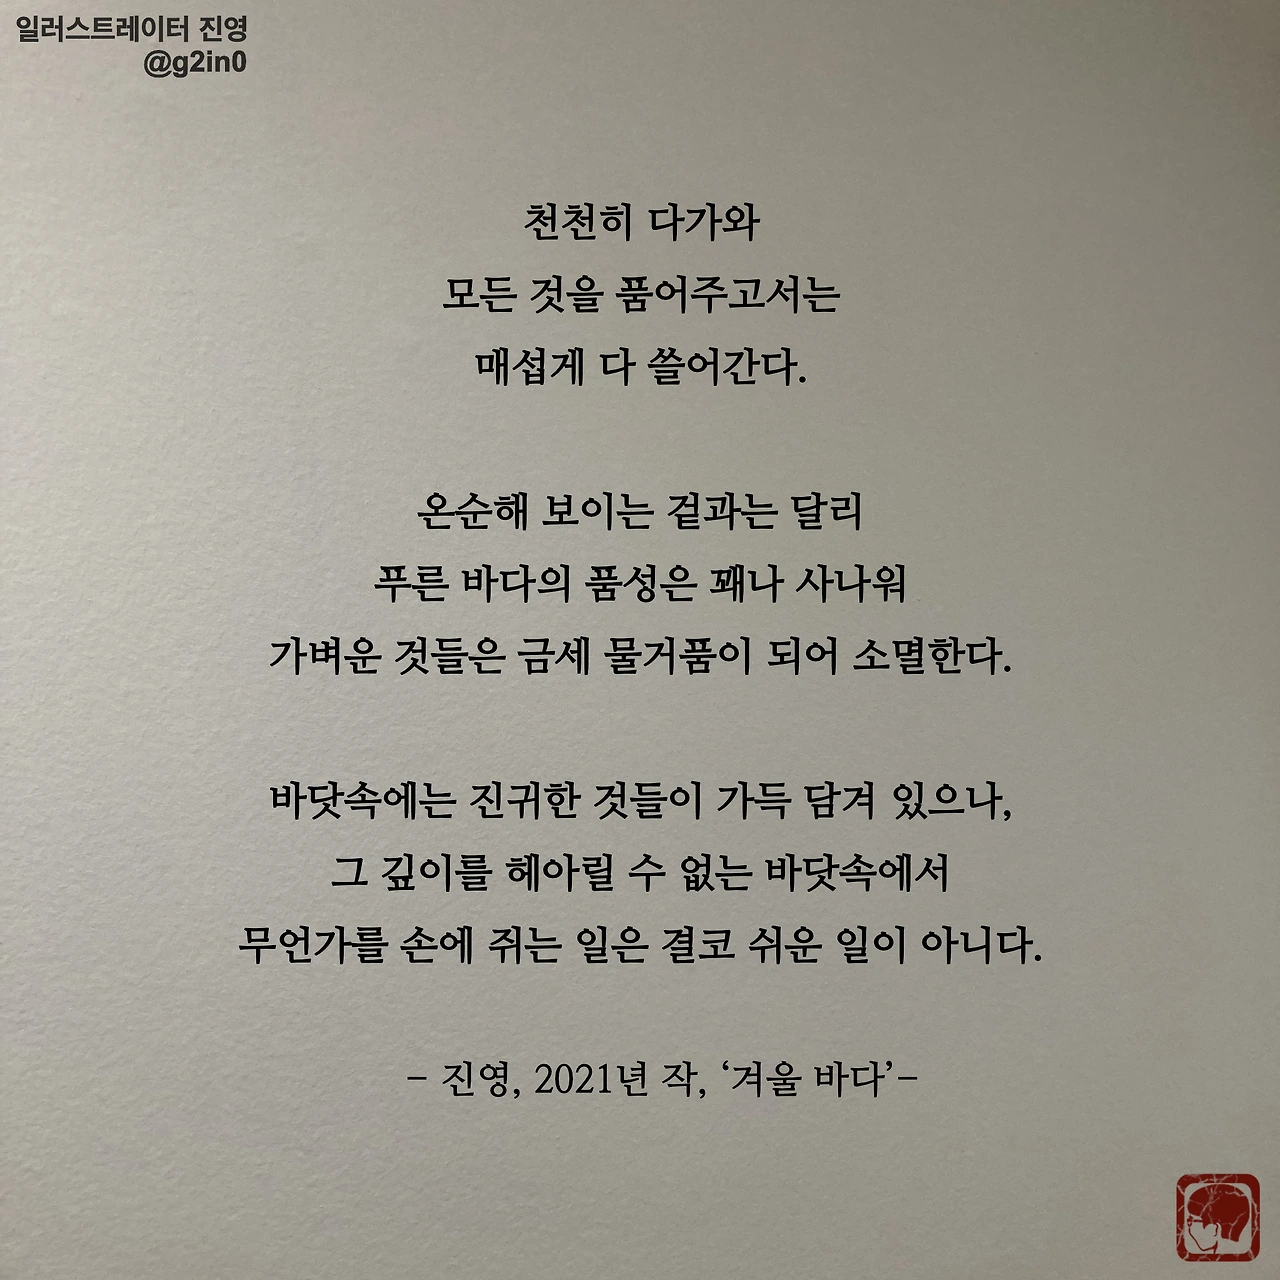 일러스트레이터 진영
@g2in0
천천히 다가와
모든 것을 품어주고서는
매섭게 다 쓸어간다.
온순해 보이는 겉과는 달리
푸른 바다의 품성은 꽤나 사나워
가벼운 것들은 금세 물거품이 되어 소멸한다.
바닷속에는 진귀한 것들이 가득 담겨 있으나,
그 깊이를 헤아릴 수 없는 바닷속에서
무언가를 손에 쥐는 일은 결코 쉬운 일이 아니다.
- 진영, 2021년 작, ‘겨울 바다’-